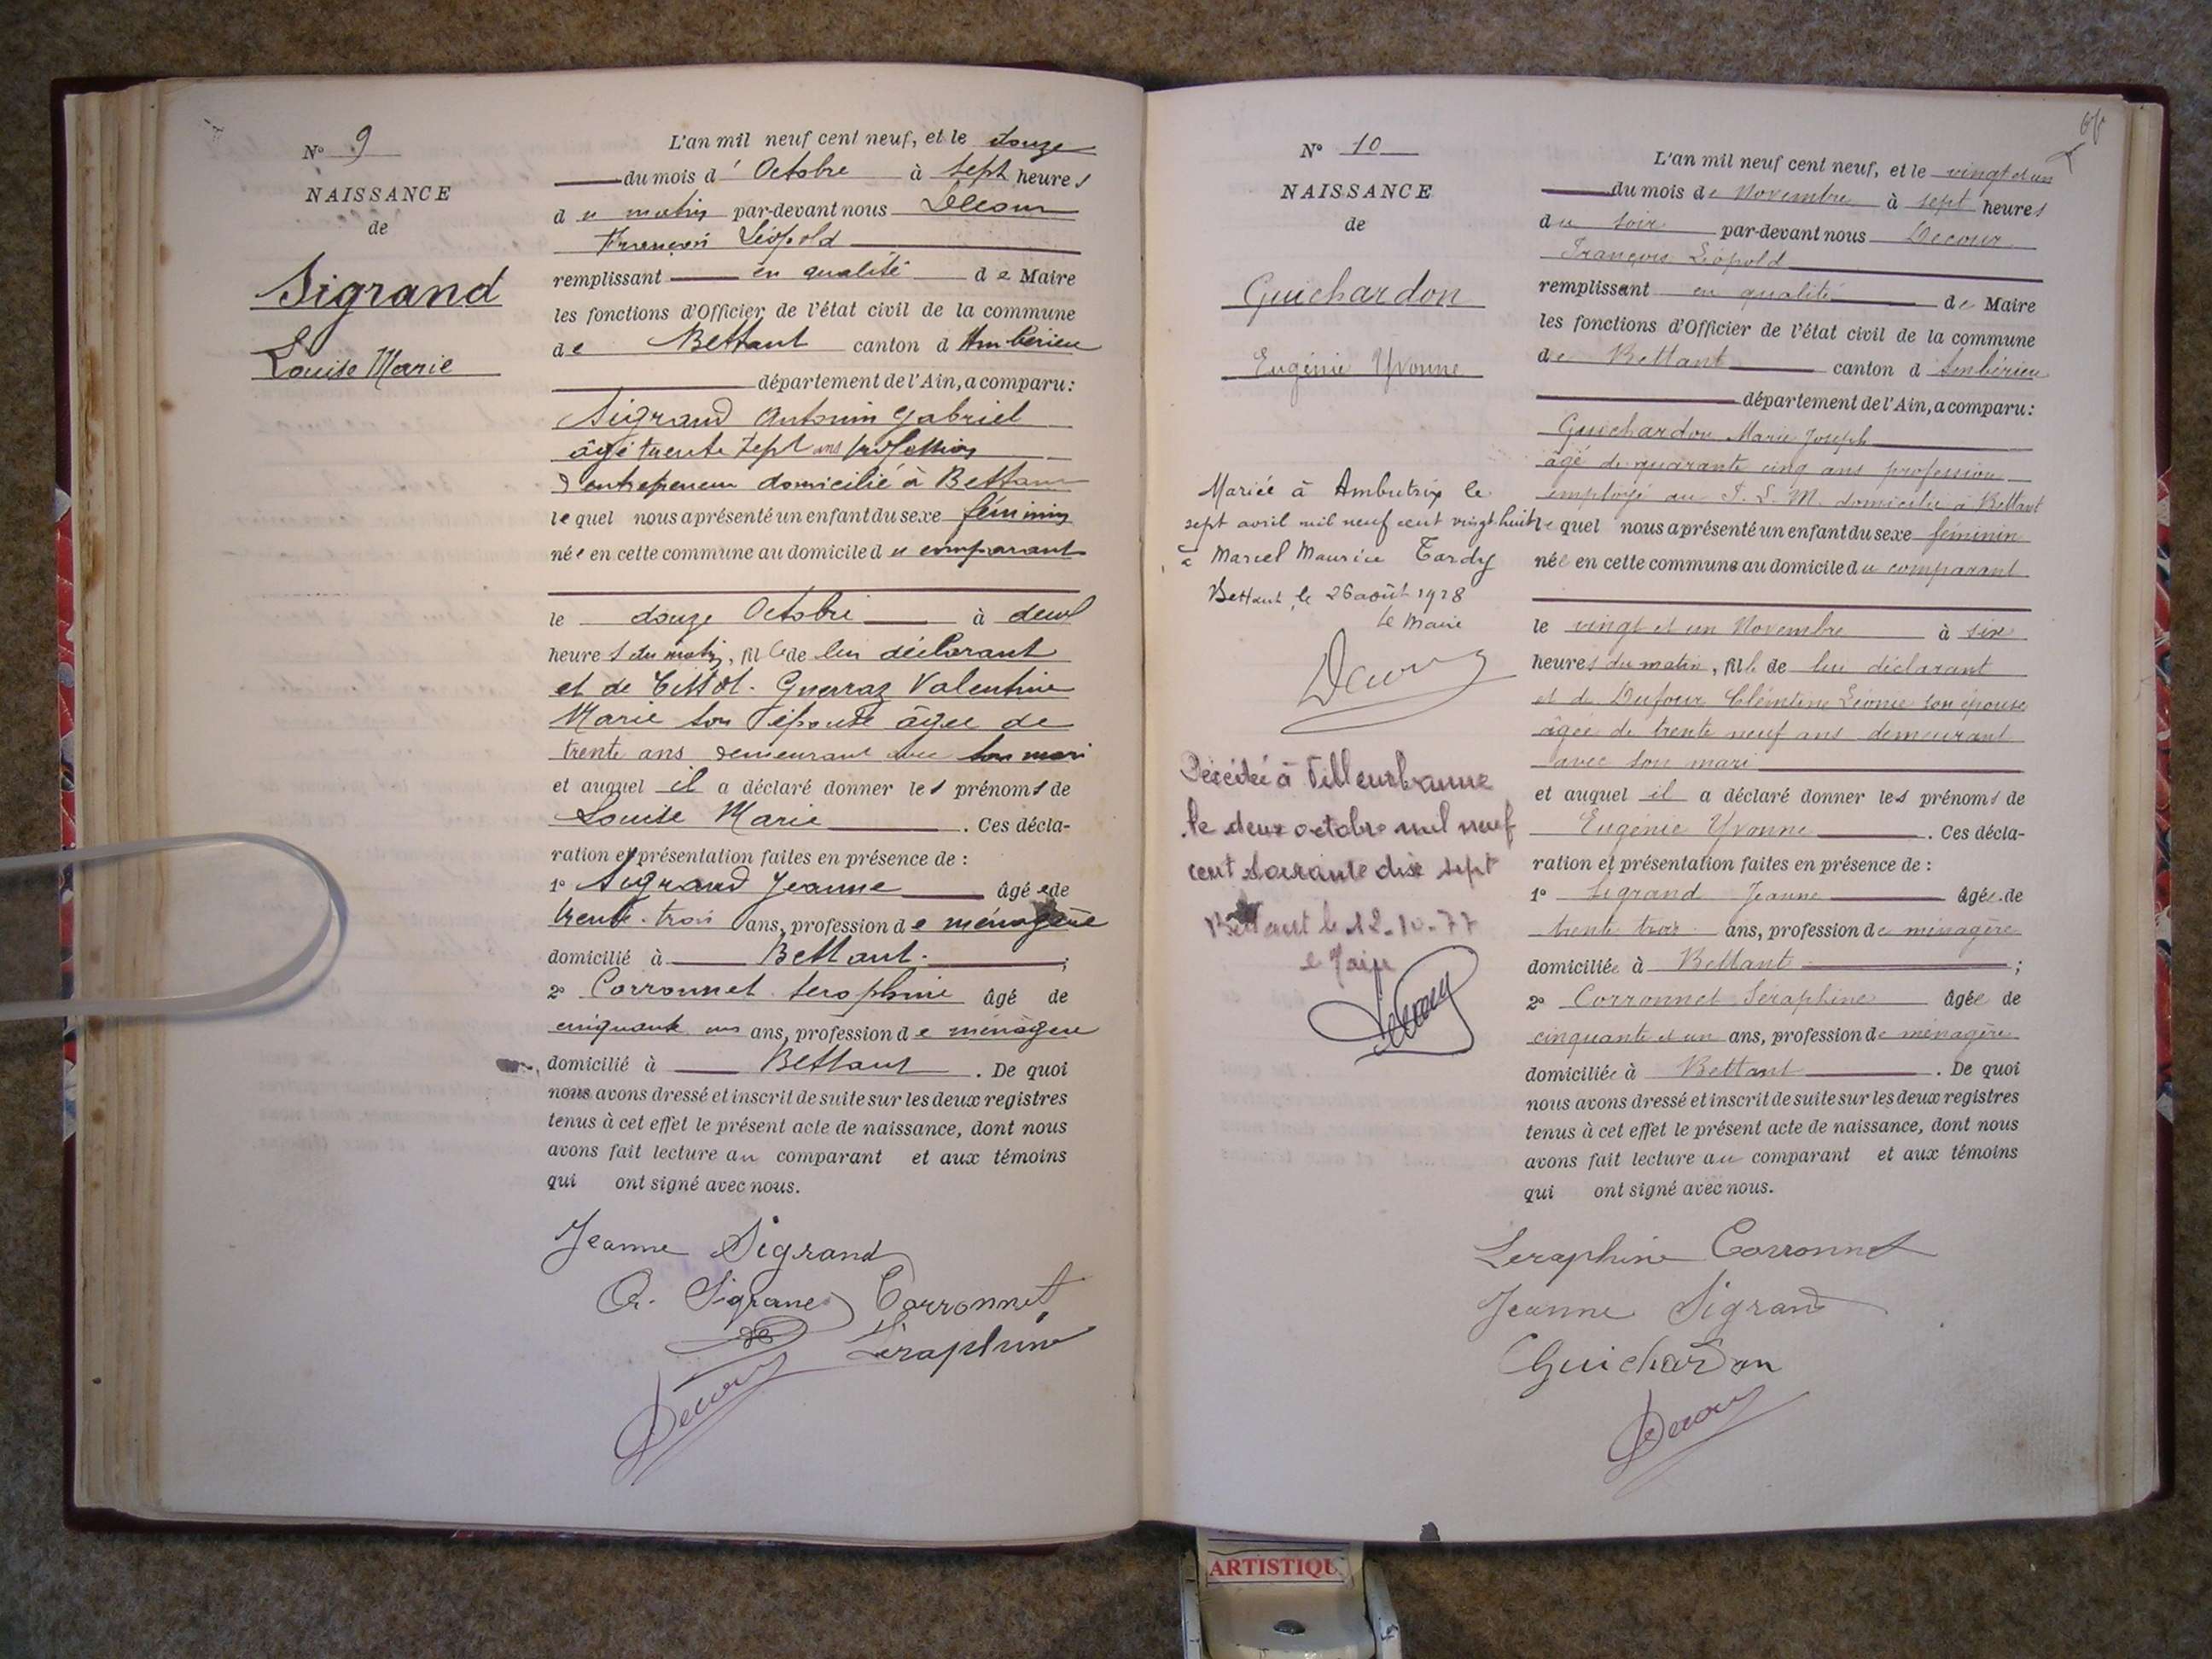 N° 9
NAISSANCE
de
Sigrand
Louise Marie
L'an mil neuf cent neuf, et le douze
du mois d' Octobre à sept heures
du matin par-devant nous Decour
François Léopold
remplissant en qualité de Maire
les fonctions d'Officier de l'état civil de la commune
de Bettant canton d Ambérieu
département de l'Ain, a comparu :
Sigrand Antonin Gabriel
âgé trente sept ans profession
d'entrepreneur domicilié à Bettant
lequel nous a présenté un enfant du sexe féminin
née en cette commune au domicile du comparant
le douze Octobre à deux
heures du matin, fille de lui déclarant
et de Guerraz Valentine
Marie son épouse âgée de
trente ans demeurant avec son mari
et auquel il a déclaré donner les prénoms de
Louise Marie . Ces décla-
ration et présentation faites en présence de :
1° Sigrand Jeanne âgée de
trente-trois ans, profession de ménagère
domicilié à Bettant ;
2° Corronnet Seraphine âgé de
cinquante un ans, profession de ménagère
domicilié à Bettant . De quoi
nous avons dressé et inscrit de suite sur les deux registres
tenus à cet effet le présent acte de naissance, dont nous
avons fait lecture au comparant et aux témoins
qui ont signé avec nous.
Jeanne Sigrand
A. Sigrand Corronnet
Séraphine
Decour
N° 10
NAISSANCE
de
Guichardon
Eugénie Yvonne
Mariée à Ambutrix le
sept avril mil neuf cent vingt huit
à Marcel Maurice Tardy
Bettant, le 26 août 1928
le Maire
Decour
Décédée à Villeurbanne
le deux octobre mil neuf
cent soixante dix sept
Bettant le 12-10-77
le Maire
L'an mil neuf cent neuf, et le vingt et un
du mois de Novembre à sept heures
du soir par-devant nous Decour
François Léopold
remplissant en qualité de Maire
les fonctions d'Officier de l'état civil de la commune
de Bettant canton d Ambérieu
département de l'Ain, a comparu :
Guichardon Marie Joseph
âgé de quarante cinq ans profession
employé au P. L. M. domicilié à Bettant
lequel nous a présenté un enfant du sexe féminin
née en cette commune au domicile du comparant
le vingt et un Novembre à six
heures du matin, fille de lui déclarant
et de Dufour Clémentine Léonie son épouse
âgée de trente neuf ans demeurant
avec son mari
et auquel il a déclaré donner les prénoms de
Eugénie Yvonne . Ces décla-
ration et présentation faites en présence de :
1° Sigrand Jeanne âgée de
trente trois ans, profession de ménagère
domiciliée à Bettant ;
2° Corronnet Séraphine âgée de
cinquante et un ans, profession de ménagère
domiciliée à Bettant . De quoi
nous avons dressé et inscrit de suite sur les deux registres
tenus à cet effet le présent acte de naissance, dont nous
avons fait lecture au comparant et aux témoins
qui ont signé avec nous.
Seraphine Corronnet
Jeanne Sigrand
Guichardon
Decour
ARTISTIQU